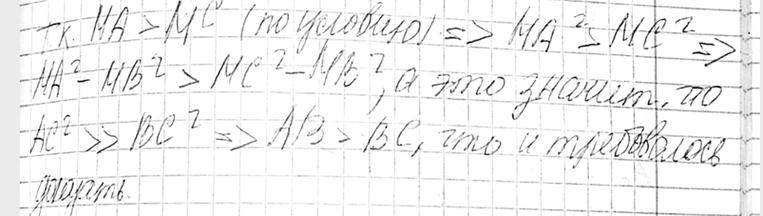 т.к. MA > MC (по условию) => MA² > MC² =>
MA² - MB² > MC² - MB², а это значит, то
AC² >> BC² => AB > BC, что и требовалось
доказать.